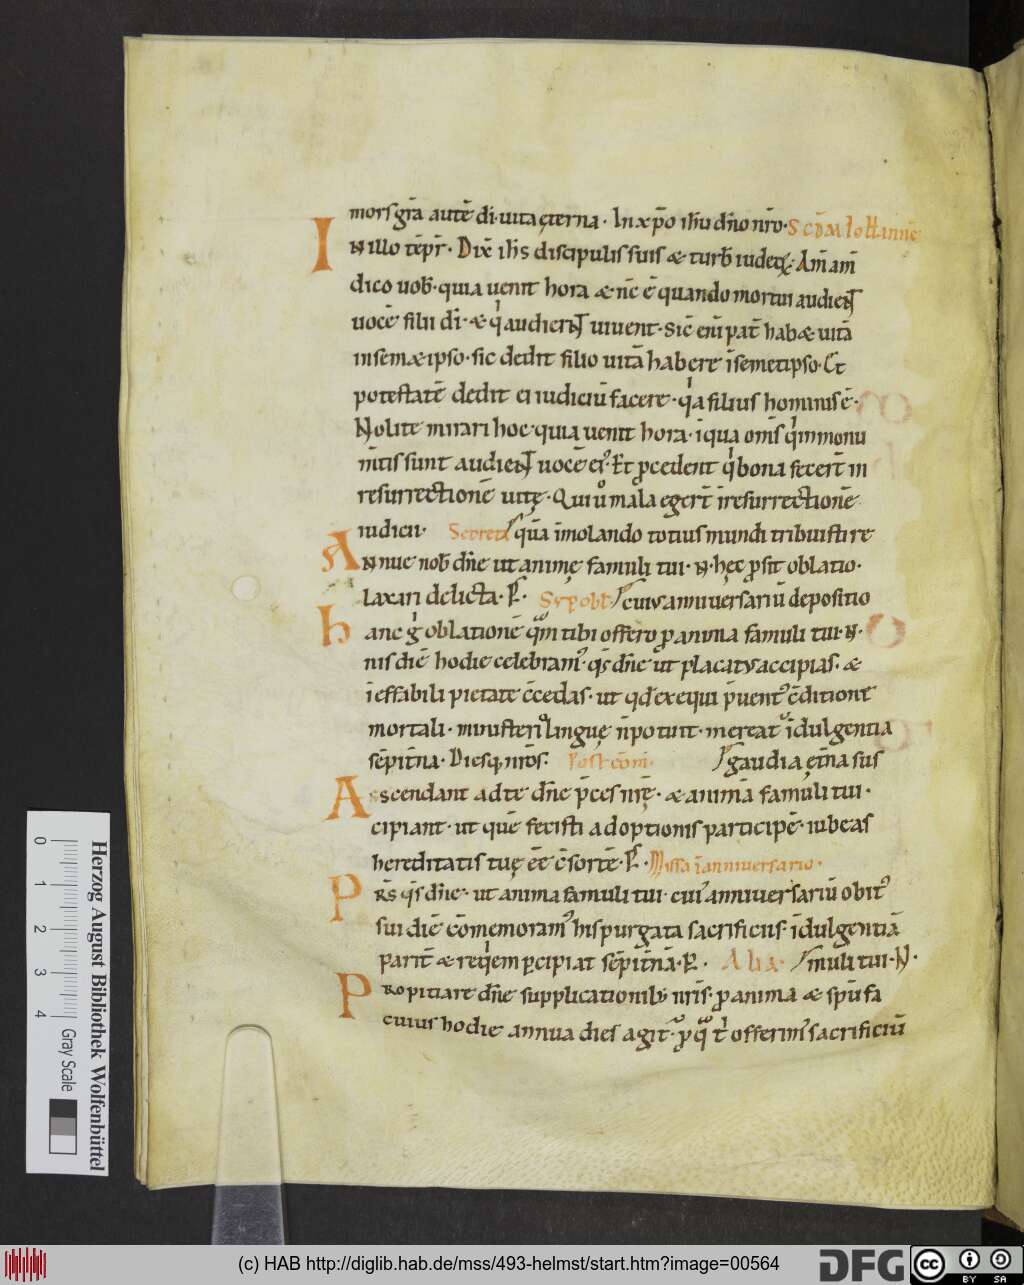 mors gr̄a autē dī uita ęterna · In xp̄o ih̄u dn̄o nr̄o · Sc̄dm Iohannē
IN illo tēpr̄ · Dix̄ ih̄s discipulis suis & turb̄ iudeoꝝ · Am̄ am̄
dico uob̄ · quia uenit hora & nc̄ ē quando mortui audient
uocē filii dī · & qͥ audierint uiuent · Sic̄ eni pat̄ hab& uitā
in semet ipso · sic dedit filio uitā habere ī semetipso · Et
potestatē dedit ei iudiciū facere · qͥa filius hominis ē ·
Nolite mirari hoc · quia uenit hora · ī qua om̄s qͥ in monu
m̄tis sunt audient uocē eiꝰ · Et ꝓcedent qͥ bona fecer̄t in
resurrectionē uitę · Qui uͦ mala egert̄ ī resurrectionē
iudicii · Secreta qūa īmolando totius mundi tribuisti re
Annue nob̄ dn̄e ut animę famuli tui · N · hęc ꝓsit oblatio ·
laxari delicta · P · Sup̄ obl̄ cuius anniuersariū depositio
hanc gͥ oblationē qͫm tibi offero ꝓ anima famuli tui · N ·
nis diē hodie celebramꝰ · qs̄ dn̄e ut placatus accipias · &
īeffabili pietate c̄cedas · ut qd̄ exequi p̄uentꝰ c̄ditione
mortali · ministerio linguę n̄ potuit · mereatᷣ īdulgentia
sēpit̄na · Diesq; nr̄os · Post com̄ · gaudia et̄na sus
Ascendant ad te dn̄e p̄ces nr̄ę · & animā famuli tui ·
cipiant · ut quē fecisti adoptionis participē · iubeas
hereditatis tuę eē c̄sortē · P · Missa ī anniuersario ·
Prs̄ qs̄ dn̄e · ut anima famuli tui · cuiꝰ anniuersariū obitꝰ
sui diē com̄emoramꝰ his purgata sacrificiis īdulgentiā
parit̄ & reqͥem ꝑcipiat sēpit̄nā · P · Alia · muli tui · N ·
Propitiare dn̄e supplicationib; nr̄is · ꝓ anima & spū fa
cuius hodie annua dies agitᷣ · ꝓ qͣ tͥ offerimꝰ sacrificiū
0 1 2 3 4
Gray Scale
Herzog August Bibliothek Wolfenbüttel
(c) HAB http://diglib.hab.de/mss/493-helmst/start.htm?image=00564
DFG
cc BY SA